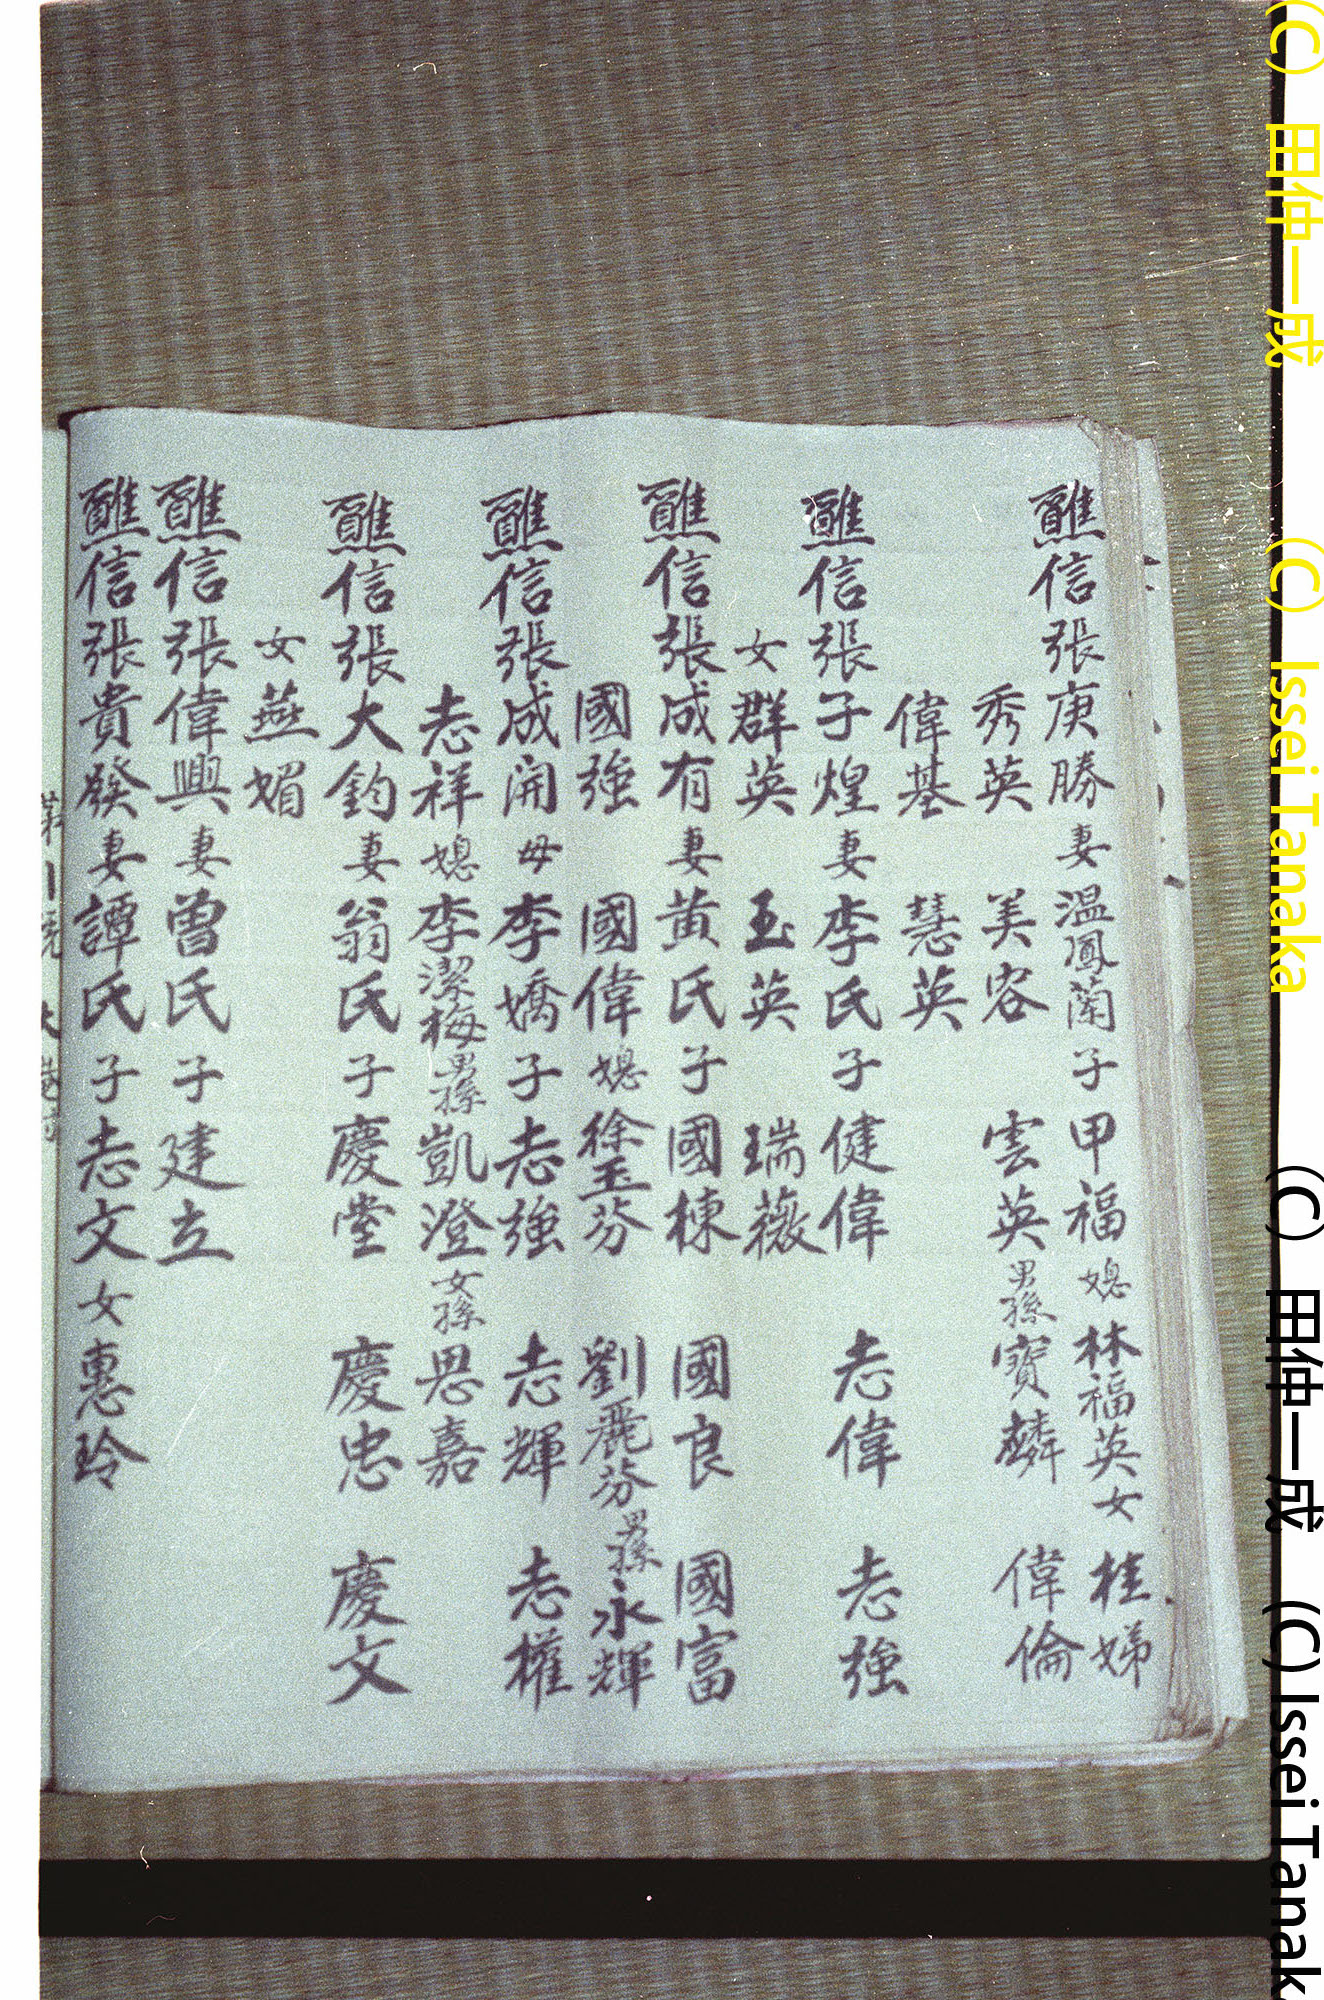 醮信張庚勝妻温鳳蘭子甲福媳林福英女桂娣
秀英 美容 雲英男孫寶麟 偉倫
偉基 慧英
醮信張子煌妻李氏子健偉 志偉 志強
女群英 玉英 瑞薇
醮信張成有妻黃氏子國棟 國良 國富
國強 國偉媳徐玉芬 劉麗芬男孫永輝
醮信張成開母李嬌子志強 志輝 志權
志祥媳李潔梅男孫凱澄女孫思嘉
醮信張大鈞妻翁氏子慶堂 慶忠 慶文
女燕媚
醮信張偉興妻曾氏子建立
醮信張貴發妻譚氏子志文女惠玲
(C) 田仲一成 (C) Issei Tanaka (C) 田仲一成 (C) Issei Tanak